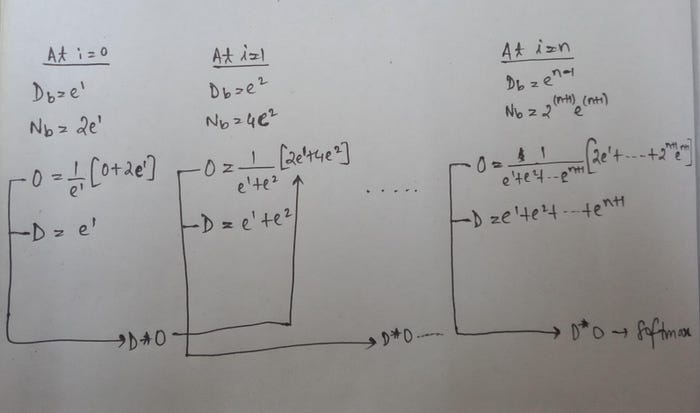 At i=0
D_b = e^1
N_b = 2e^1
O = 1/e^1 [0+2e^1]
D = e^1
D*O
At i=1
D_b = e^2
N_b = 4e^2
O = 1/(e^1+e^2) [2e^1+4e^2]
D = e^1+e^2
D*O
.....
At i=n
D_b = e^(n-1)
N_b = 2^(n+1) e^(n+1)
O = 1/(e^1+e^2+...e^(n+1)) [2e^1+....+2^(n+1)e^(n+1)]
D = e^1+e^2+...+e^(n+1)
D*O → Softmax